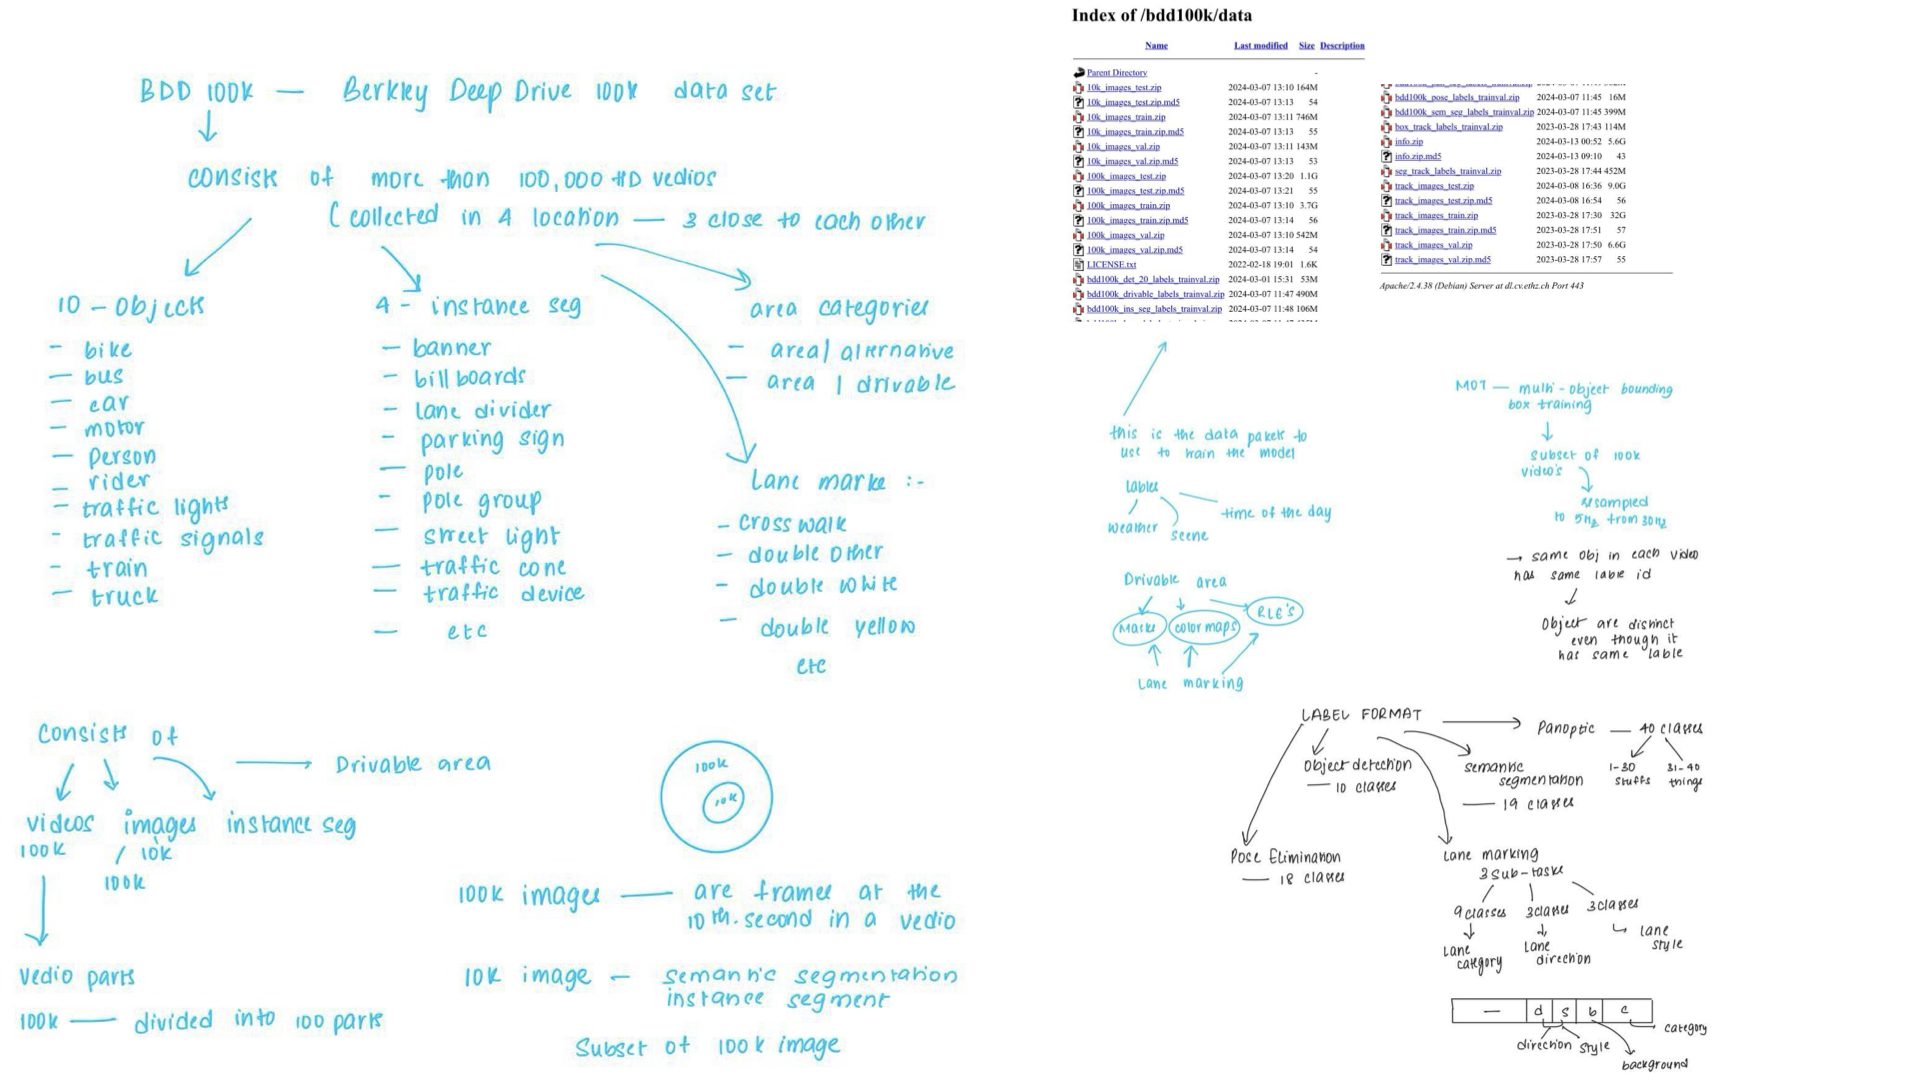 BDD 100k — Berkley Deep Drive 100k data set
consists of more than 100,000 HD vedios
( collected in 4 location — 3 close to each other
10 - Objects
- bike
- bus
- car
- motor
- person
- rider
- traffic lights
- traffic signals
- train
- truck
4 - instance seg
- banner
- bill boards
- lane divider
- parking sign
- pole
- pole group
- street light
- traffic cone
- traffic device
- etc
area categories
- area/ alternative
- area / drivable
Lane marks :-
- cross walk
- double other
- double white
- double yellow
etc
Consists of
Drivable area
videos images instance seg
100k / 10k
100k
vedio parts
100k — divided into 100 parts
100k
10k
100k images — are frames at the
10th. second in a vedio
10k image — semantic segmentation
instance segment
Subset of 100k image
Index of /bdd100k/data
Name Last modified Size Description
Parent Directory -
10k_images_test.zip 2024-03-07 13:10 164M
10k_images_test.zip.md5 2024-03-07 13:13 54
10k_images_train.zip 2024-03-07 13:11 746M
10k_images_train.zip.md5 2024-03-07 13:13 55
10k_images_val.zip 2024-03-07 13:11 143M
10k_images_val.zip.md5 2024-03-07 13:13 53
100k_images_test.zip 2024-03-07 13:20 1.1G
100k_images_test.zip.md5 2024-03-07 13:21 55
100k_images_train.zip 2024-03-07 13:10 3.7G
100k_images_train.zip.md5 2024-03-07 13:14 56
100k_images_val.zip 2024-03-07 13:10 542M
100k_images_val.zip.md5 2024-03-07 13:14 54
LICENSE.txt 2022-02-18 19:01 1.6K
bdd100k_det_20_labels_trainval.zip 2024-03-01 15:31 53M
bdd100k_drivable_labels_trainval.zip 2024-03-07 11:47 490M
bdd100k_ins_seg_labels_trainval.zip 2024-03-07 11:48 106M
bdd100k_pose_labels_trainval.zip 2024-03-07 11:45 16M
bdd100k_sem_seg_labels_trainval.zip 2024-03-07 11:45 399M
box_track_labels_trainval.zip 2023-03-28 17:43 114M
info.zip 2024-03-13 00:52 5.6G
info.zip.md5 2024-03-13 09:10 43
seg_track_labels_trainval.zip 2023-03-28 17:44 452M
track_images_test.zip 2024-03-08 16:36 9.0G
track_images_test.zip.md5 2024-03-08 16:54 56
track_images_train.zip 2023-03-28 17:30 32G
track_images_train.zip.md5 2023-03-28 17:51 57
track_images_val.zip 2023-03-28 17:50 6.6G
track_images_val.zip.md5 2023-03-28 17:57 55
Apache/2.4.38 (Debian) Server at dl.cv.ethz.ch Port 443
this is the data pakets to
use to train the model
lables
weather
scene
time of the day
Drivable area
Masks color maps RLE's
Lane marking
MOT — multi - object bounding
box training
Subset of 100k
video's
resampled
to 5Hz from 30Hz
→ same obj in each video
has same lable id
Object are distinct
even though it
has same lable
LABEL FORMAT
Panoptic — 40 classes
1-30 stuffs
31-40 things
Object detection
— 10 classes
semantic
segmentation
— 19 classes
Pose Elimination
— 18 classes
Lane marking
3 Sub-tasks
9 classes 3 classes 3 classes
Lane category
Lane direction
lane style
— d s b c
category
direction style
background